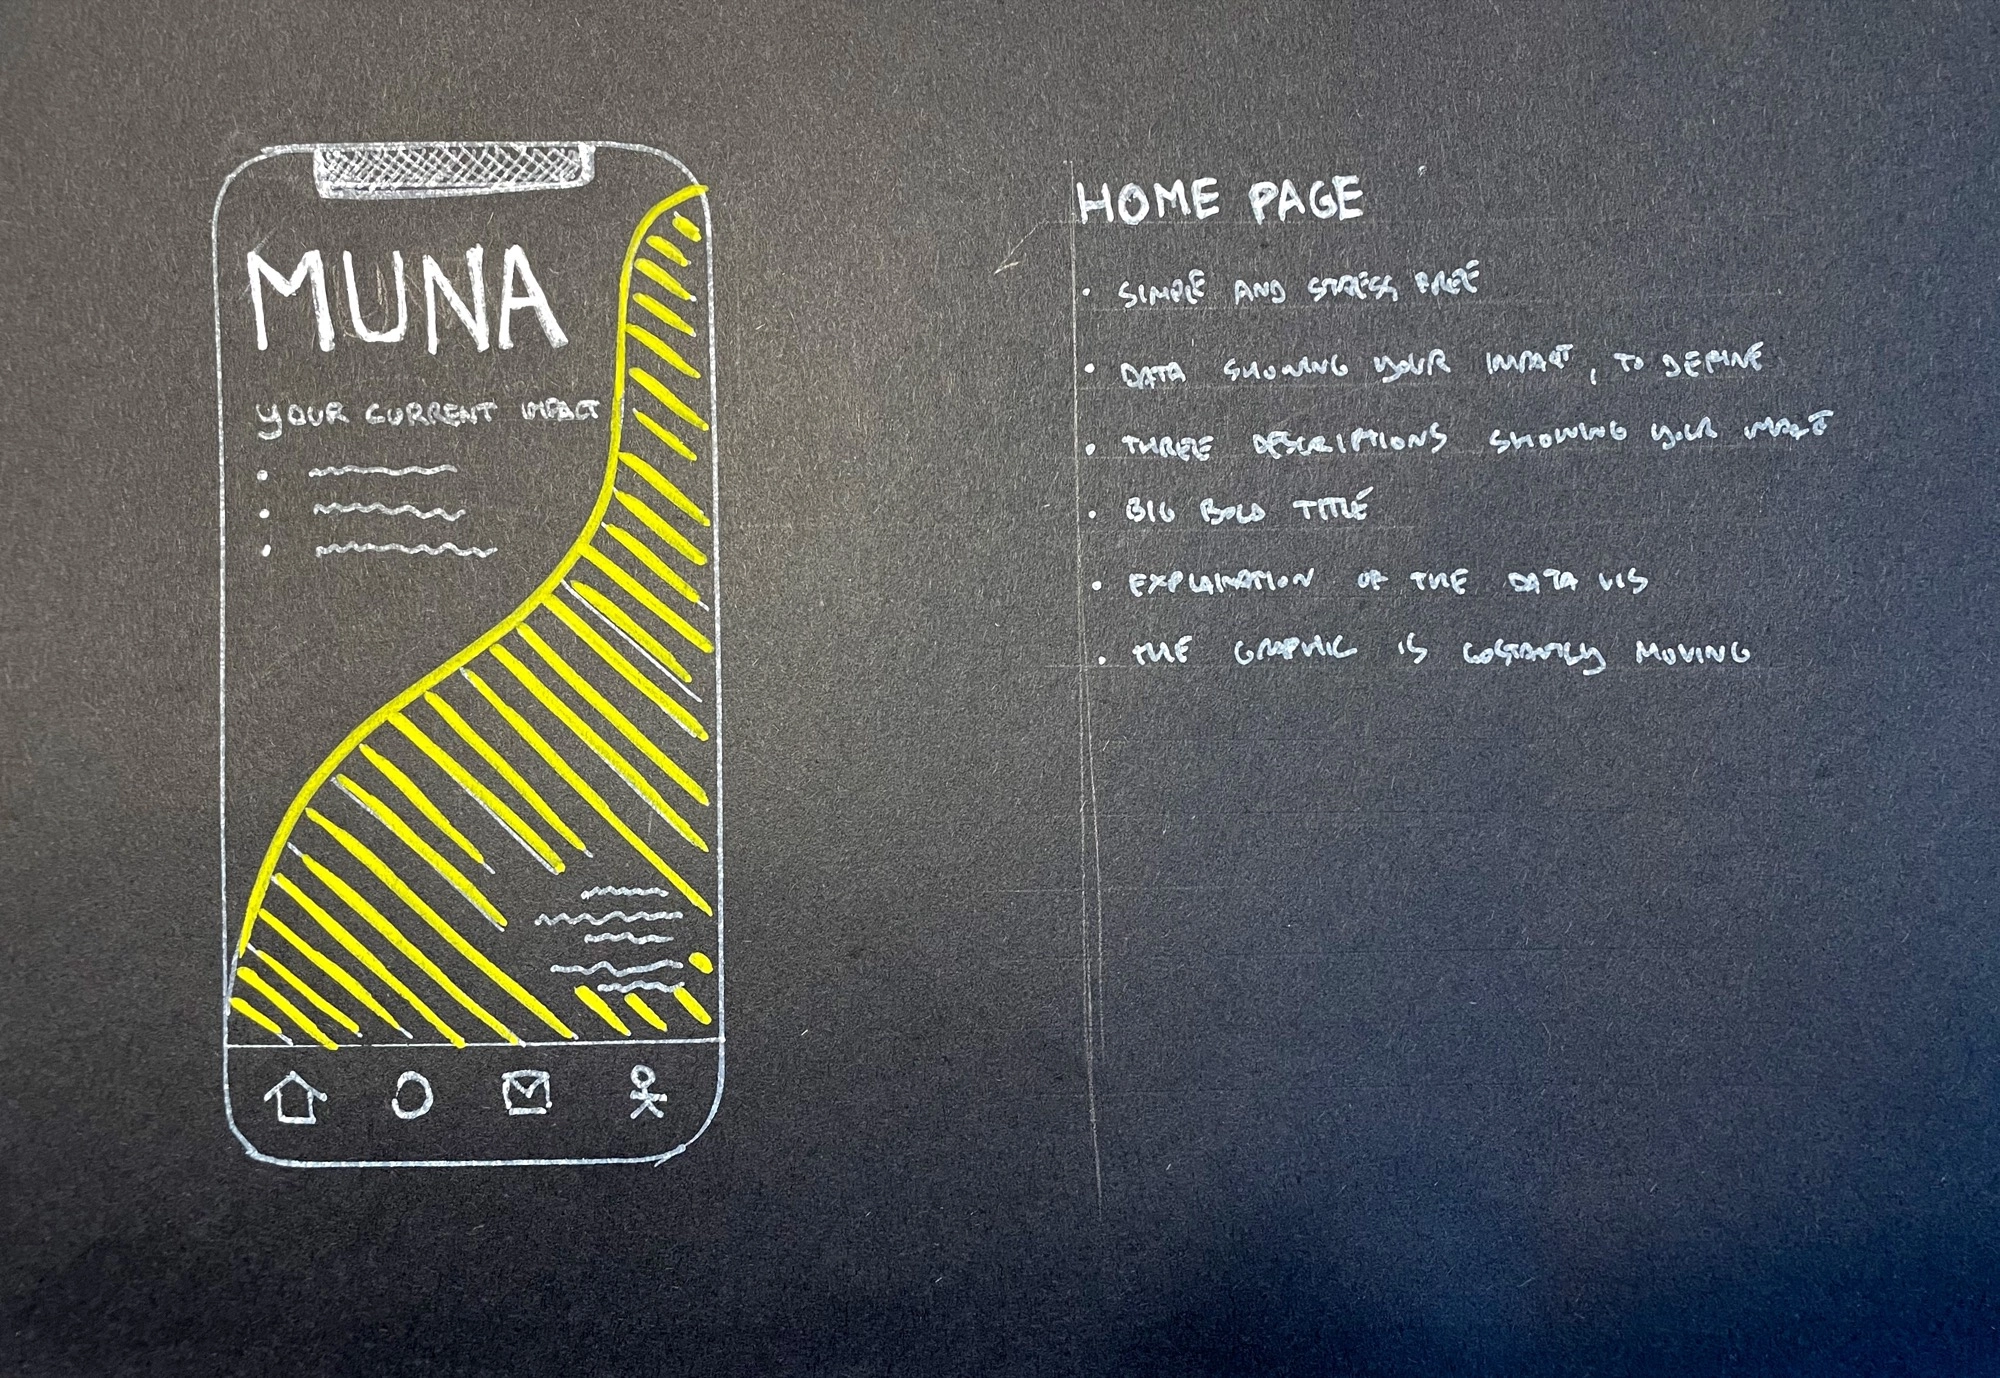 MUNA
YOUR CURRENT IMPACT
HOME PAGE
• SIMPLE AND STRESS FREE
• DATA SHOWING YOUR IMPACT, TO DEFINE
• THREE DESCRIPTIONS SHOWING YOUR IMPACT
• BIG BOLD TITLE
• EXPLAINATION OF THE DATA VIS
• THE GRAPHIC IS COSTANTLY MOVING